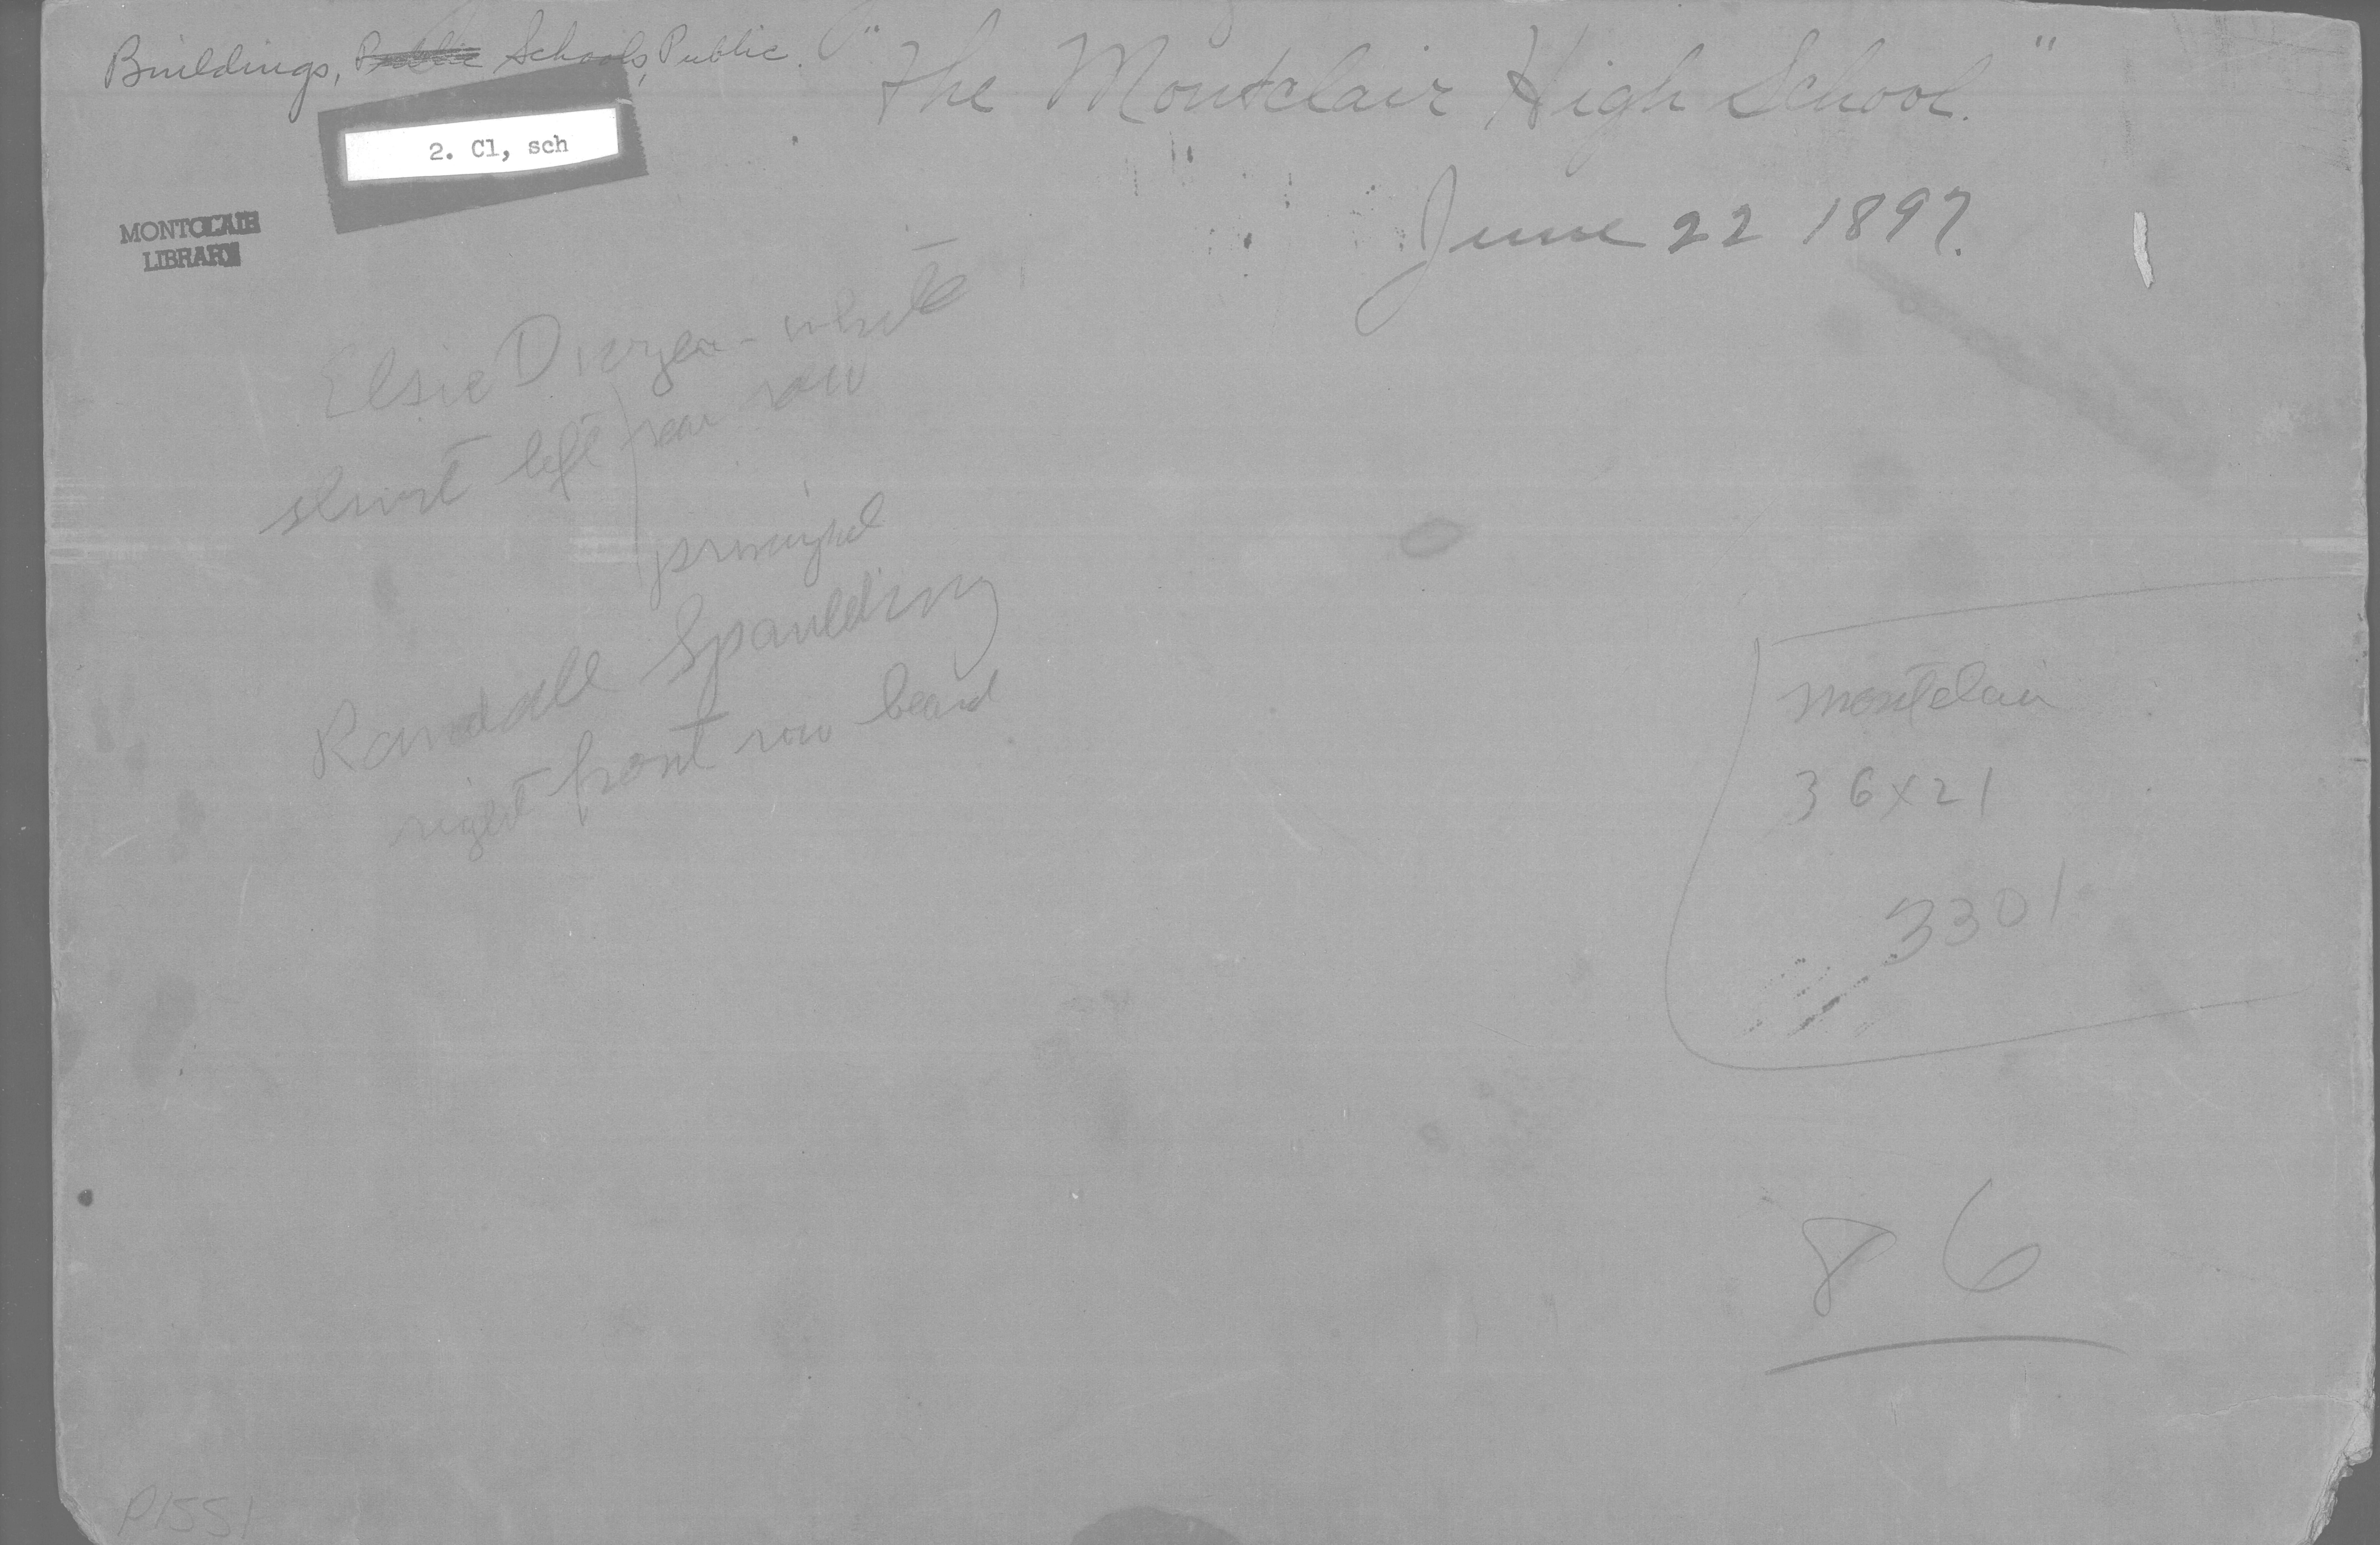 Buildings, Public Schools, Public.
"The Montclair High School."
2. Cl, sch
June 22 1897.
MONTCLAIR
LIBRARY
Elsie - white
shirt left rear row
principal
Randall Spaulding
right front row beard
Montclair
36x21
3301
86
P1551